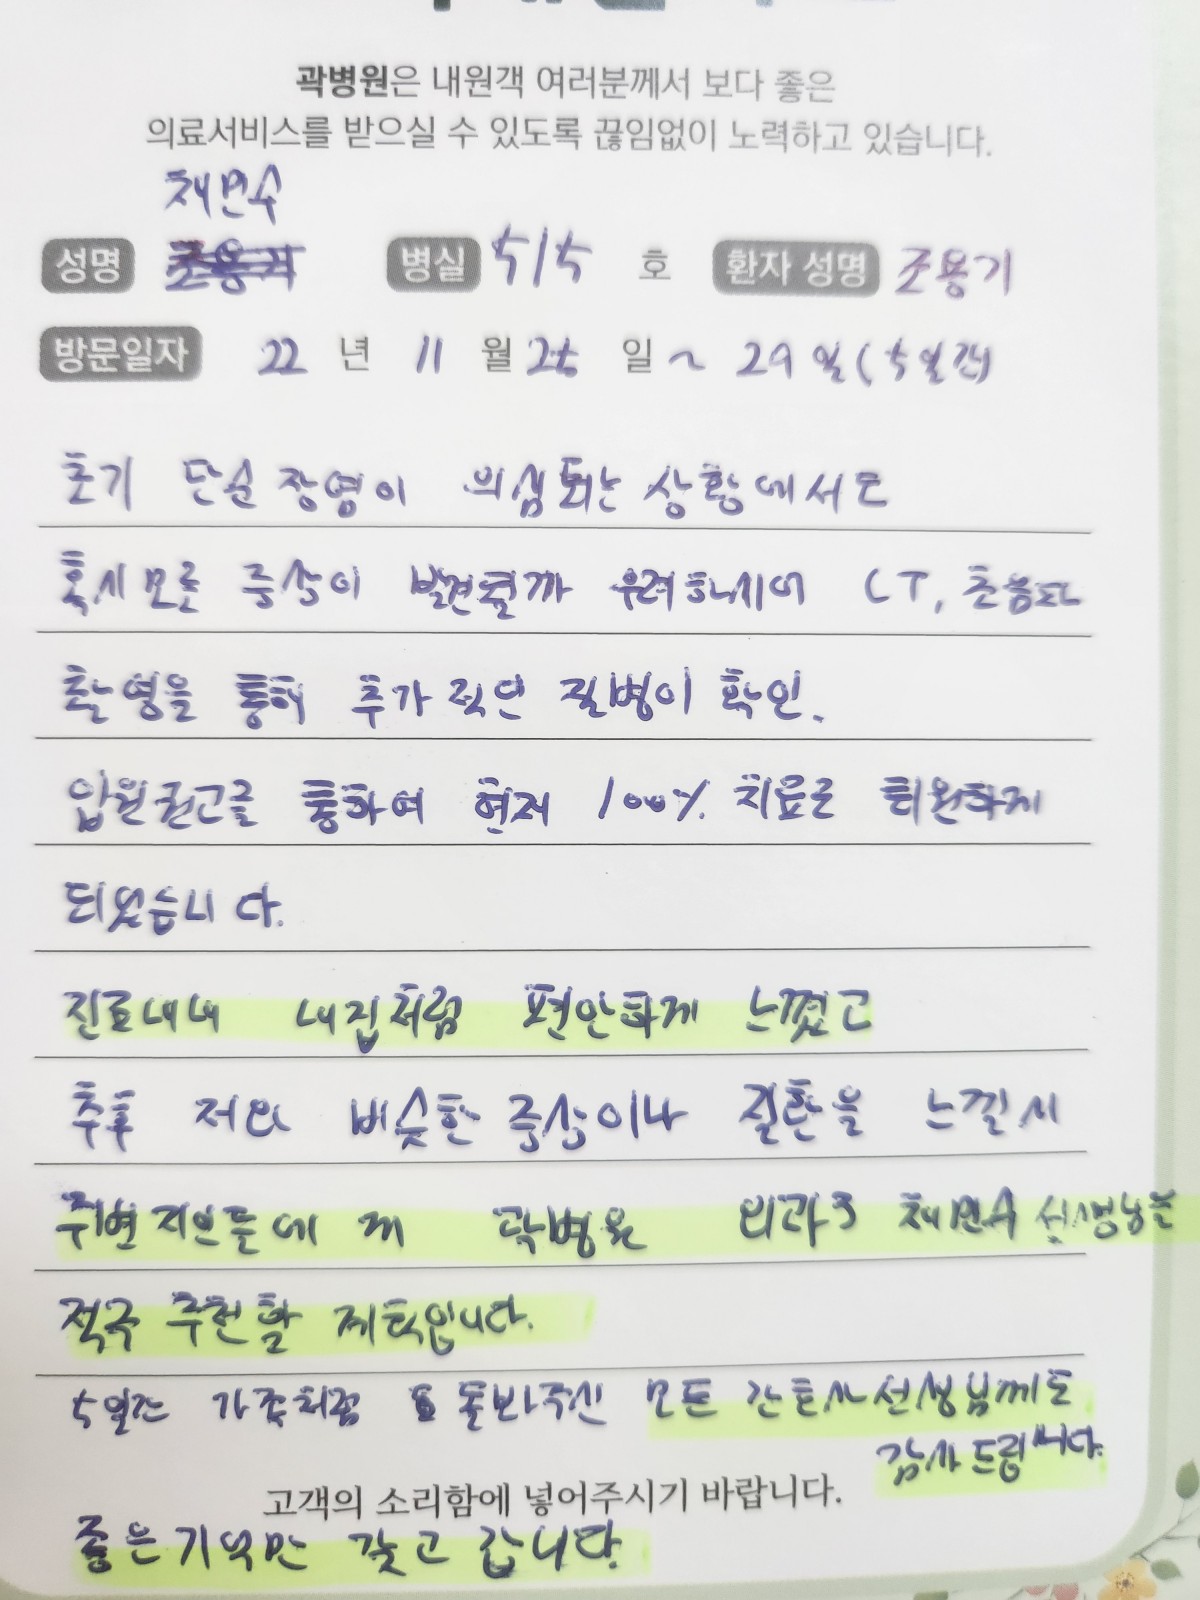 곽병원은 내원객 여러분께서 보다 좋은
의료서비스를 받으실 수 있도록 끊임없이 노력하고 있습니다.
채민수
성명 조용기 병실 515 호 환자 성명 조용기
방문일자 22 년 11 월 25 일 ~ 29일(5일간)
초기 단순 장염이 의심되는 상황에서도
혹시 모를 증상이 발견될까 우려하시어 CT, 초음파
촬영을 통해 추가적인 질병이 확인.
입원권고를 통하여 현재 100% 치료로 퇴원하게
되었습니다.
진료내내 내집처럼 편안하게 느꼈고
추후 저와 비슷한 증상이나 질환을 느낄시
주변 지인들에게 곽병원 외과3 채민수 선생님을
적극 추천할 계획입니다.
5일간 가족처럼 돌봐주신 모든 간호사선생님께도
감사드립니다.
고객의 소리함에 넣어주시기 바랍니다.
좋은기억만 갖고 갑니다.